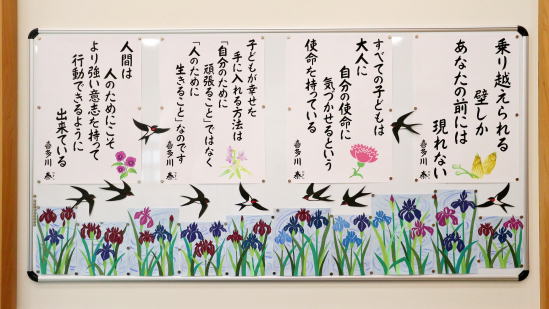 乗り越えられる
壁しか
あなたの前には
現れない
喜多川 泰
すべての子どもは
大人に
自分の使命に
気づかせるという
使命を持っている
喜多川 泰
子どもが幸せを
手に入れる方法は
「自分のために
頑張ること」ではなく
「人のために
生きること」なのです
喜多川 泰
人間は
人のためにこそ
より強い意志を持って
行動できるように
出来ている
喜多川 泰